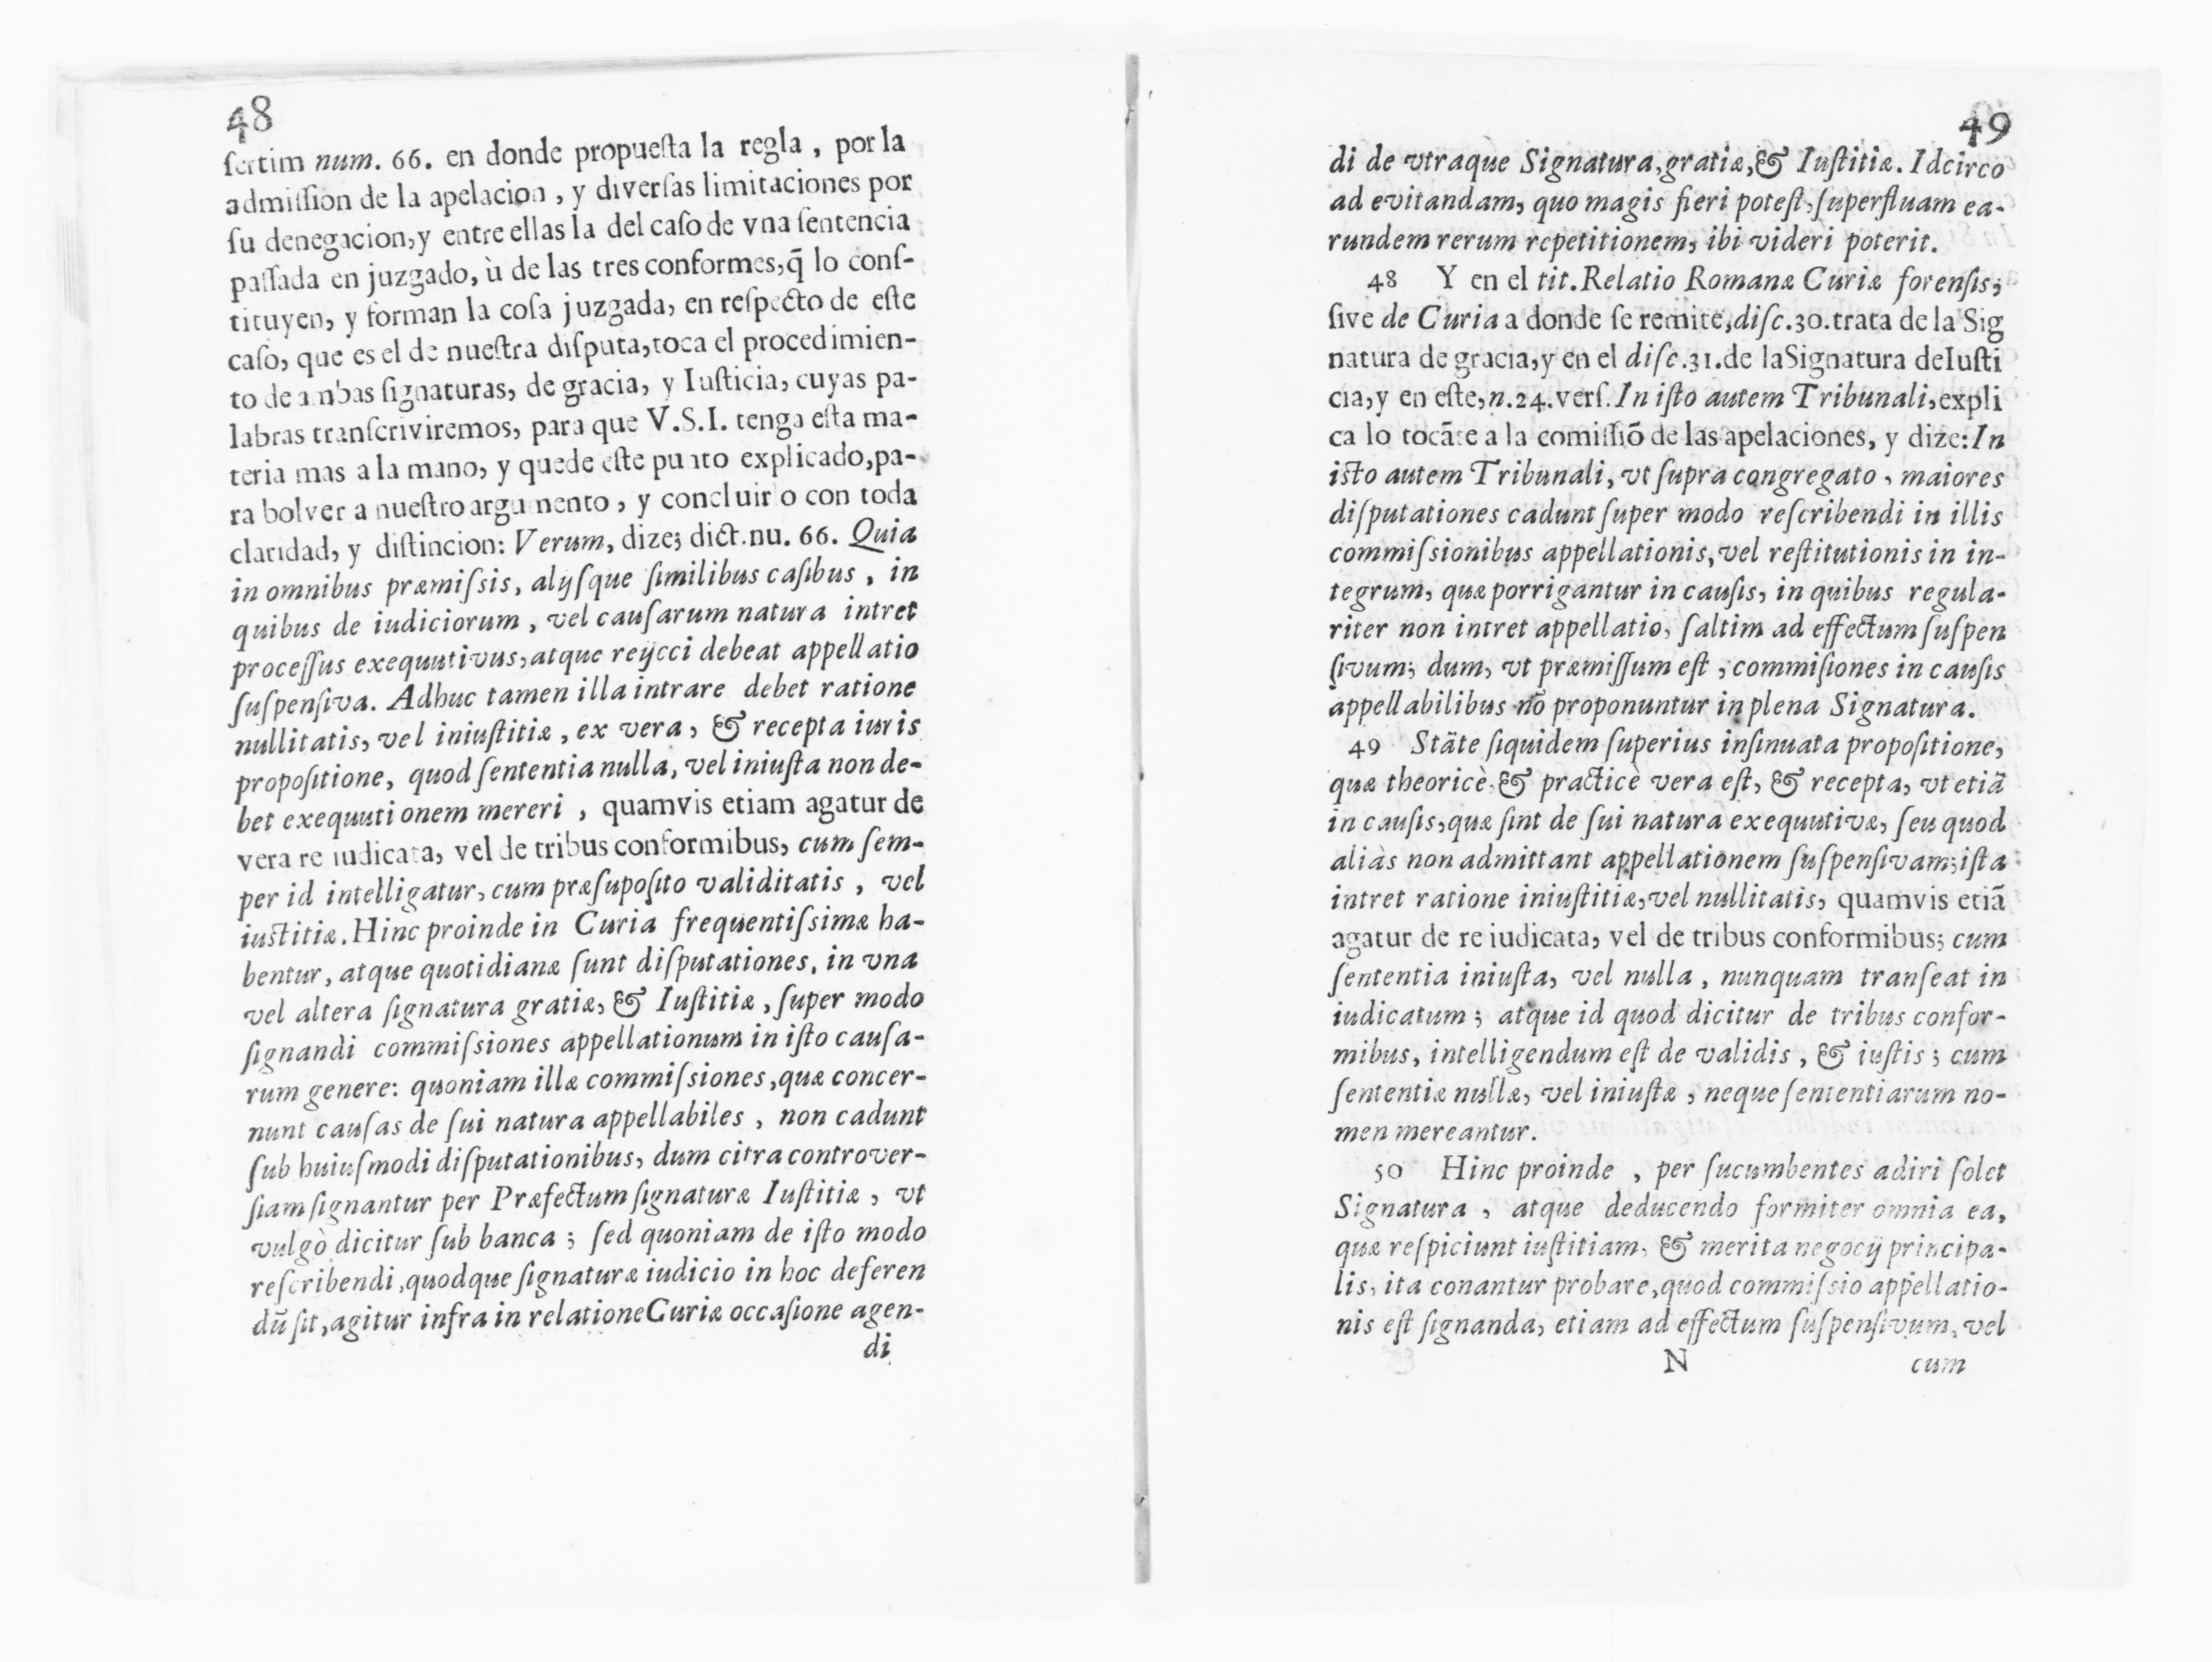 48
ſertim num. 66. en donde propueſta la regla , por la
admiſſion de la apelacion , y diverſas limitaciones por
ſu denegacion, y entre ellas la del caſo de vna ſentencia
paſſada en juzgado, ù de las tres conformes, q̃ lo conſ-
tituyen, y forman la coſa juzgada, en reſpecto de eſte
caſo, que es el de nueſtra diſputa, toca el procedimien-
to de ambas ſignaturas, de gracia, y Iuſticia, cuyas pa-
labras tranſcriviremos, para que V.S.I. tenga eſta ma-
teria mas a la mano, y quede eſte punto explicado, pa-
ra bolver a nueſtro argumento , y concluirlo con toda
claridad, y diſtincion: Verum, dize; dict.nu. 66. Quia
in omnibus præmiſsis, alijſque ſimilibus caſibus , in
quibus de iudiciorum , vel cauſarum natura intret
proceſſus exequutivus, atque reijcci debeat appellatio
ſuſpenſiva. Adhuc tamen illa intrare debet ratione
nullitatis, vel iniuſtitiæ , ex vera , & recepta iuris
propoſitione, quod ſententia nulla, vel iniuſta non de-
bet exequutionem mereri , quamvis etiam agatur de
vera re iudicata, vel de tribus conformibus, cum ſem-
per id intelligatur, cum præſupoſito validitatis , vel
iuſtitiæ. Hinc proinde in Curia frequentiſsimæ ha-
bentur, atque quotidianæ ſunt diſputationes, in vna
vel altera ſignatura gratiæ, & Iuſtitiæ , ſuper modo
ſignandi commiſsiones appellationum in iſto cauſa-
rum genere: quoniam illæ commiſsiones, quæ concer-
nunt cauſas de ſui natura appellabiles , non cadunt
ſub huiuſmodi diſputationibus, dum citra controver-
ſiam ſignantur per Præfectum ſignaturæ Iuſtitiæ , vt
vulgò dicitur ſub banca ; ſed quoniam de iſto modo
reſcribendi, quodque ſignaturæ iudicio in hoc deferen
dũ ſit, agitur infra in relatione Curiæ occaſione agen-
di
49
di de vtraque Signatura, gratiæ, & Iuſtitiæ. Idcirco
ad evitandam, quo magis fieri poteſt, ſuperfluam ea-
rundem rerum repetitionem, ibi videri poterit.
48 Y en el tit. Relatio Romanæ Curiæ forenſis;
ſive de Curia a donde ſe remite, diſc.30. trata de la Sig
natura de gracia, y en el diſc.31. de la Signatura de Iuſti
cia, y en eſte, n.24. verſ. In iſto autem Tribunali, expli
ca lo tocãte a la comiſſiõ de las apelaciones, y dize: In
iſto autem Tribunali, vt ſupra congregato , maiores
diſputationes cadunt ſuper modo reſcribendi in illis
commiſsionibus appellationis, vel reſtitutionis in in-
tegrum, quæ porrigantur in cauſis, in quibus regula-
riter non intret appellatio, ſaltim ad effectum ſuſpen
ſivum; dum, vt præmiſſum eſt , commiſiones in cauſis
appellabilibus nõ proponuntur in plena Signatura.
49 Stãte ſiquidem ſuperius inſinuata propoſitione,
quæ theoricè, & practicè vera eſt, & recepta, vt etiã
in cauſis, quæ ſint de ſui natura exequutivæ, ſeu quod
aliàs non admittant appellationem ſuſpenſivam; iſta
intret ratione iniuſtitiæ, vel nullitatis, quamvis etiã
agatur de re iudicata, vel de tribus conformibus; cum
ſententia iniuſta, vel nulla , nunquam tranſeat in
iudicatum ; atque id quod dicitur de tribus confor-
mibus, intelligendum eſt de validis , & iuſtis ; cum
ſententiæ nullæ, vel iniuſtæ , neque ſententiarum no-
men mereantur.
50 Hinc proinde , per ſucumbentes adiri ſolet
Signatura , atque deducendo formiter omnia ea,
quæ reſpiciunt iuſtitiam, & merita negocij principa-
lis, ita conantur probare, quod commiſsio appellatio-
nis eſt ſignanda, etiam ad effectum ſuſpenſivum, vel
N cum